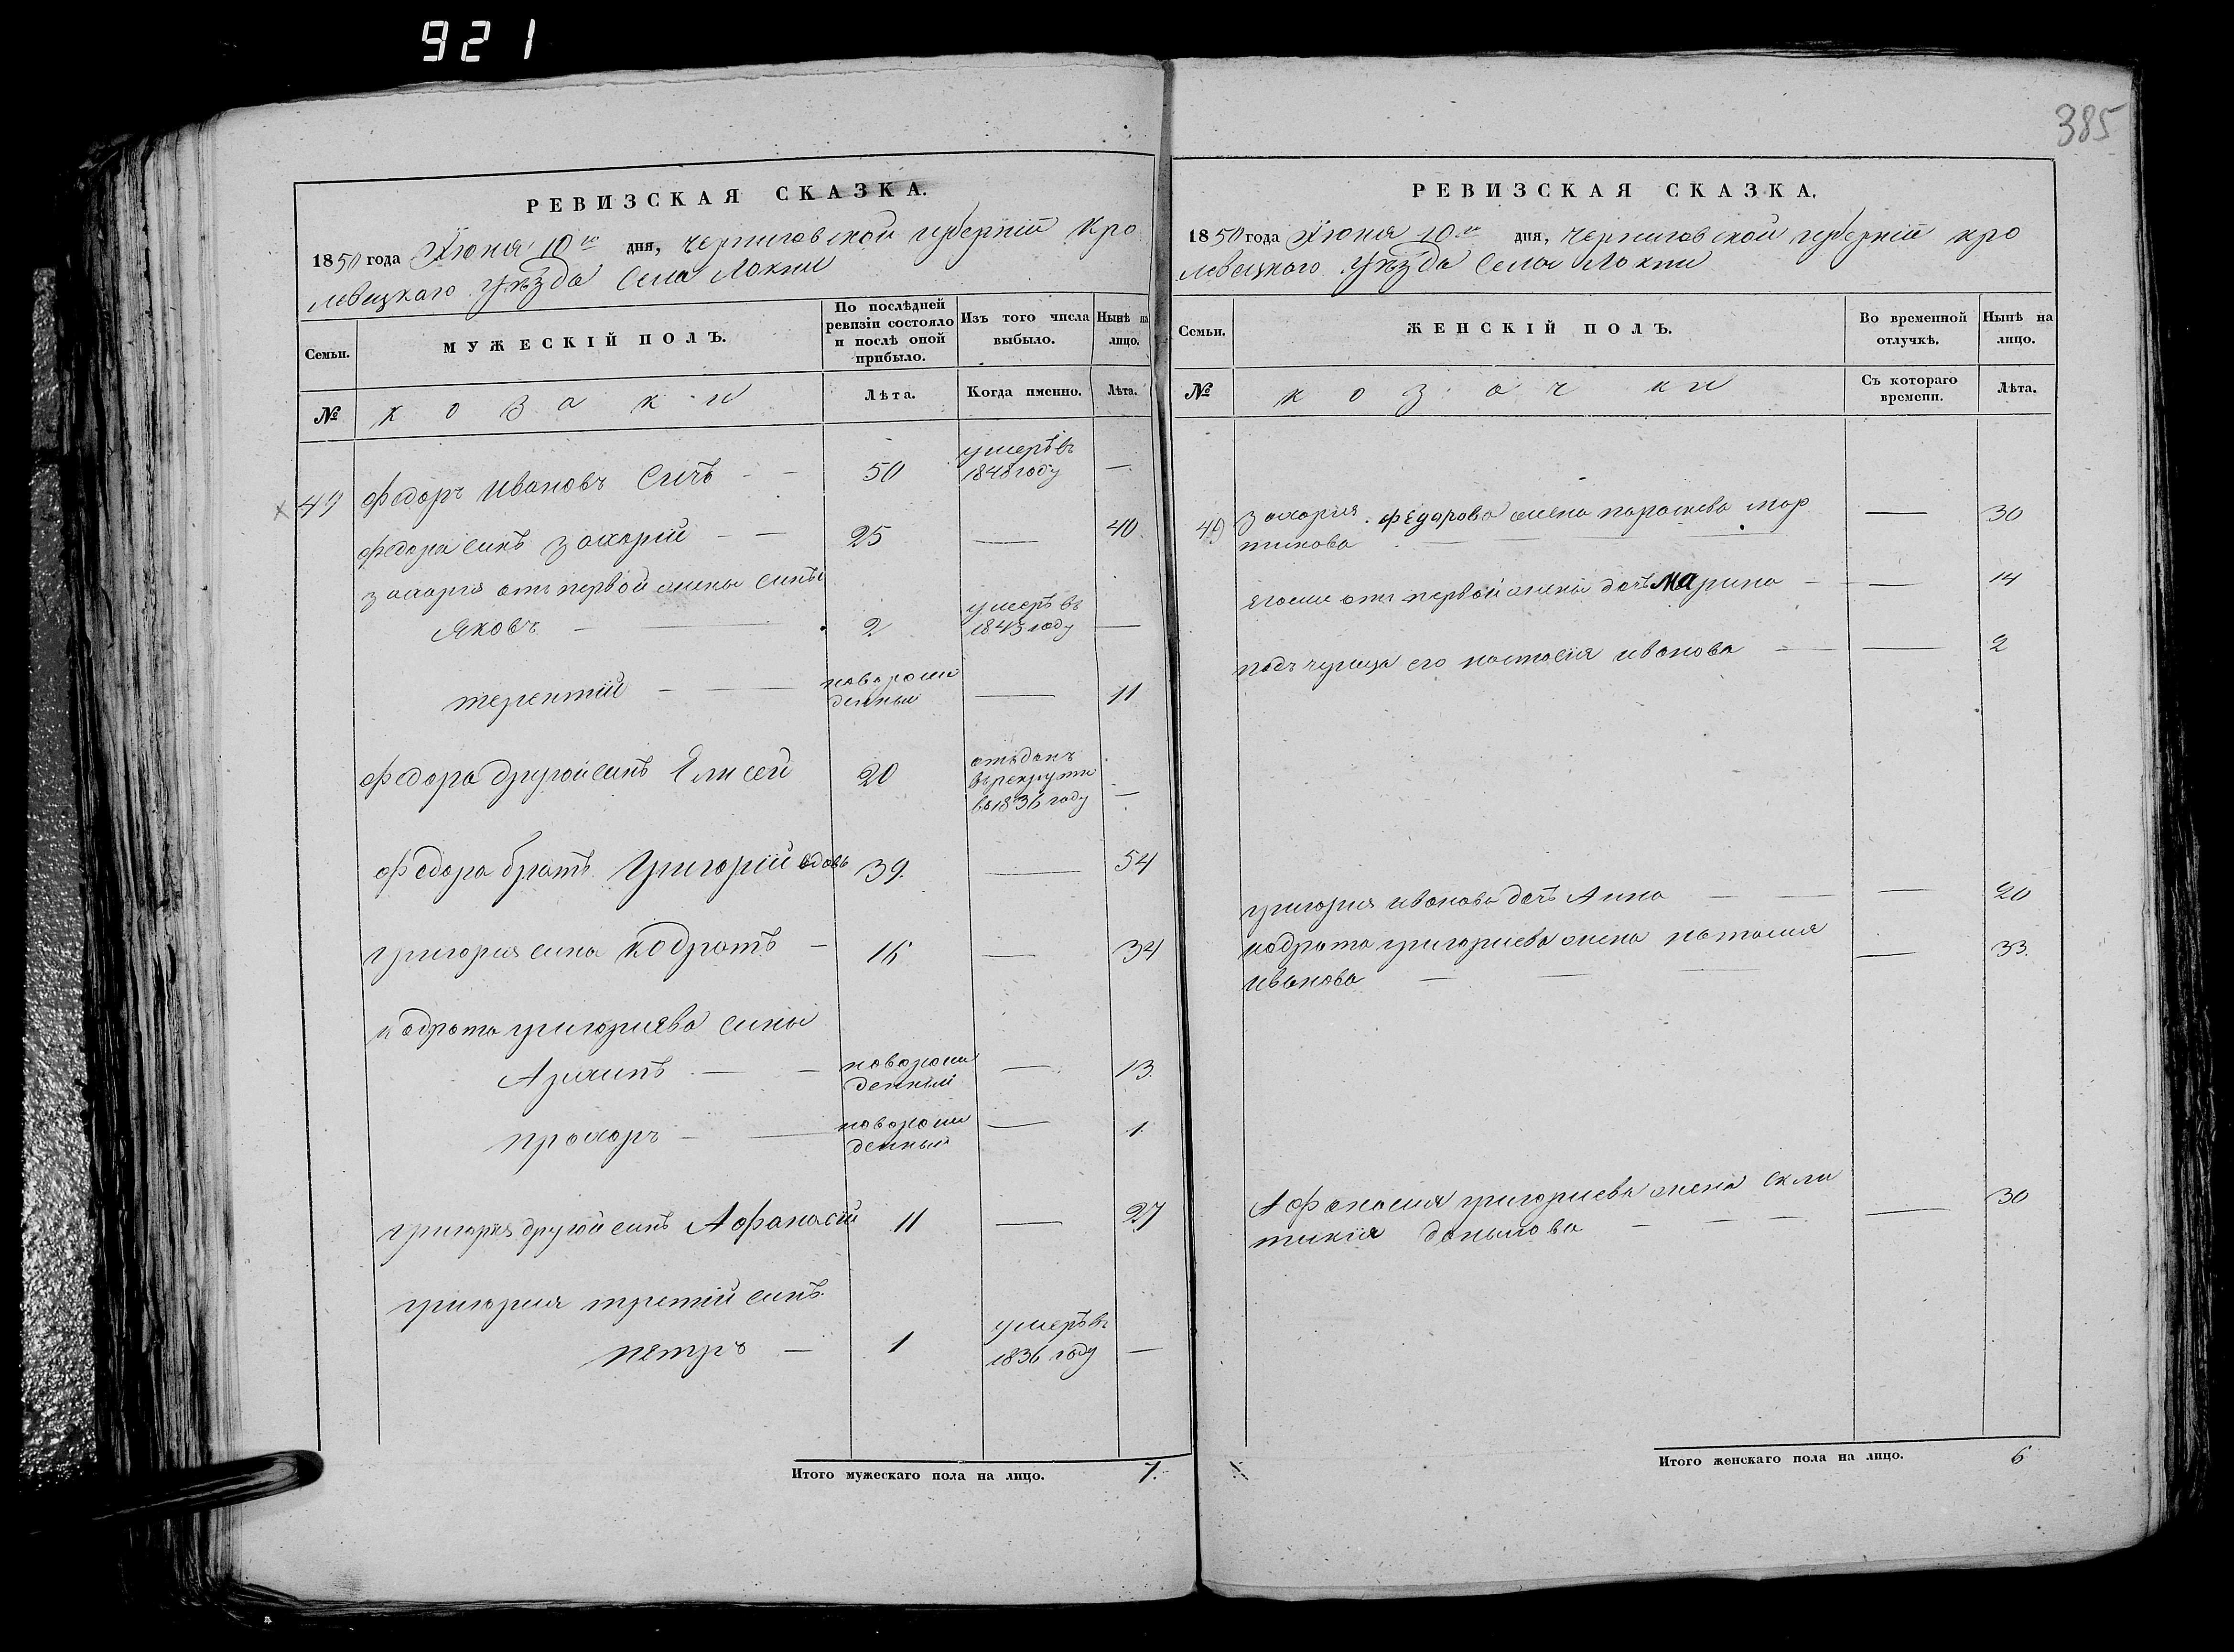 921
385
РЕВИЗСКАЯ СКАЗКА.
1850 года Июня 10го дня, Черниговской губерніи Кро
левецкаго уѣзда Села Локни
Семьи.
МУЖЕСКІЙ ПОЛЪ.
По послѣдней ревизіи состояло и послѣ оной прибыло.
Изъ того числа выбыло.
Нынѣ на лицо.
№
козаки
Лѣта.
Когда именно.
Лѣта.
49 Федоръ Ивановъ Сичъ - - 50 умеръ въ 1848 году —
Федора синъ Захарій - - 25 — 40
Захарія отъ первой жены сины
Яковъ - — 2 умеръ въ 1843 году —
Терентій - — новорожденный — 11
Федора другой синъ Елисей 20 отъданъ въ рекруты въ 1836 году —
Федора братъ Григорій вдовъ 39. — 54
Григорія сина Кодратъ - 16 — 34
Кодрата Григориева сины
Архипъ - - новорожденный — 13.
Прохоръ - — новорожденный — 1.
Григорія другой синъ Афанасій 11 — 27
Григорія третій синъ
Петръ - 1 умеръ въ 1836 году —
Итого мужескаго пола на лицо. 7.
РЕВИЗСКАЯ СКАЗКА.
1850 года Июня 10го дня, Черниговской губерніи Кро
левецкаго уѣзда Села Локни
Семьи.
ЖЕНСКІЙ ПОЛЪ.
Во временной отлучкѣ.
Нынѣ на лицо.
№
козачки
Съ котораго времени.
Лѣта.
49 Захария Федорова жена Параскева Мар
тинова — 30
Егоже отъ первой жены дочь Марина - — 14
Падчерица его Настасія Иванова - — 2
Григория Иванова дочь Анна — — 20
Кодрата Григориева жена Наталия
Иванова — 33.
Афанасия Григориева жена Екли
тикія Данилова - — 30
Итого женскаго пола на лицо. 6